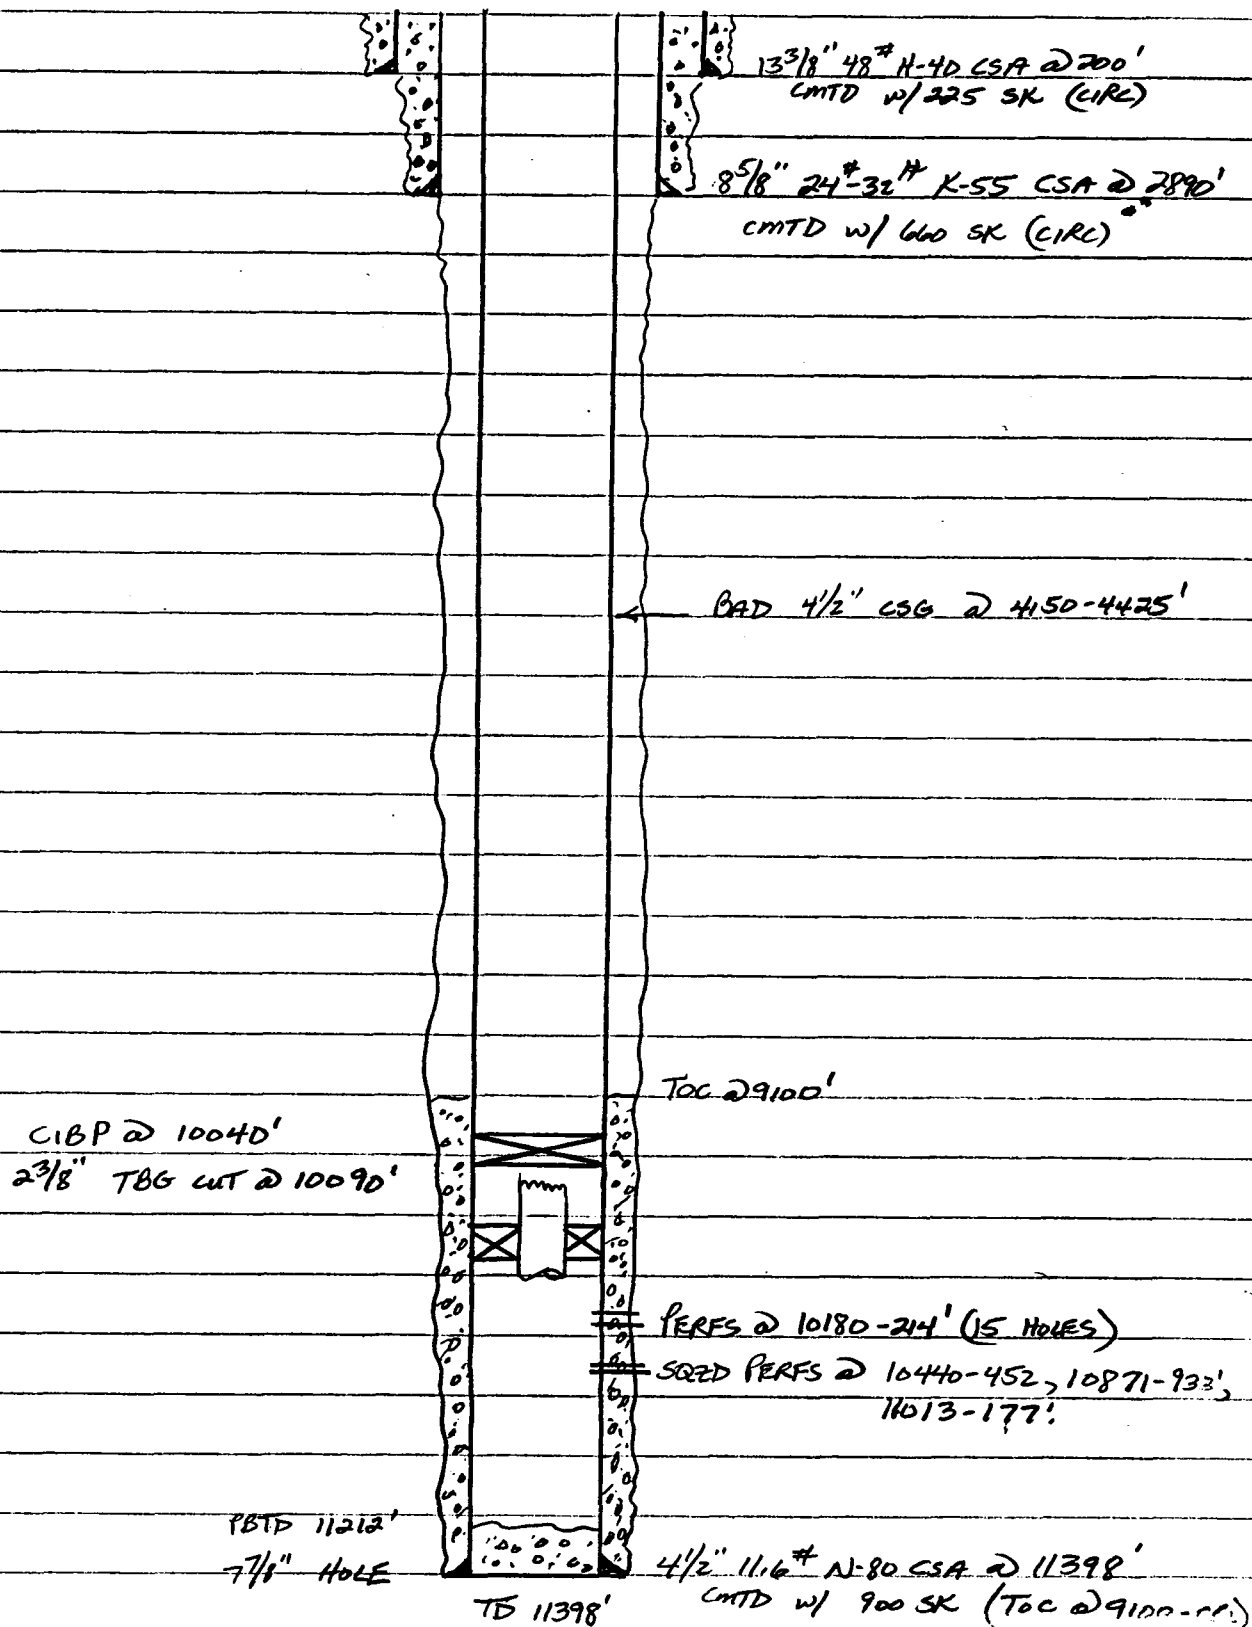 13 3/8" 48# H-40 CSA @ 200'
CMTD w/ 225 SK (CIRC)
8 5/8" 24#-32# K-55 CSA @ 2890'
CMTD w/ 660 SK (CIRC)
BAD 4 1/2" CSG @ 4150-4425'
TOC @ 9100'
CIBP @ 10040'
2 3/8" TBG CUT @ 10090'
PERFS @ 10180-214' (15 HOLES)
SQZD PERFS @ 10440-452, 10871-933',
11013-177'.
PBTD 11212'
7 7/8" HOLE
4 1/2" 11.6# N-80 CSA @ 11398'
CMTD w/ 900 SK (TOC @ 9100-
TD 11398'